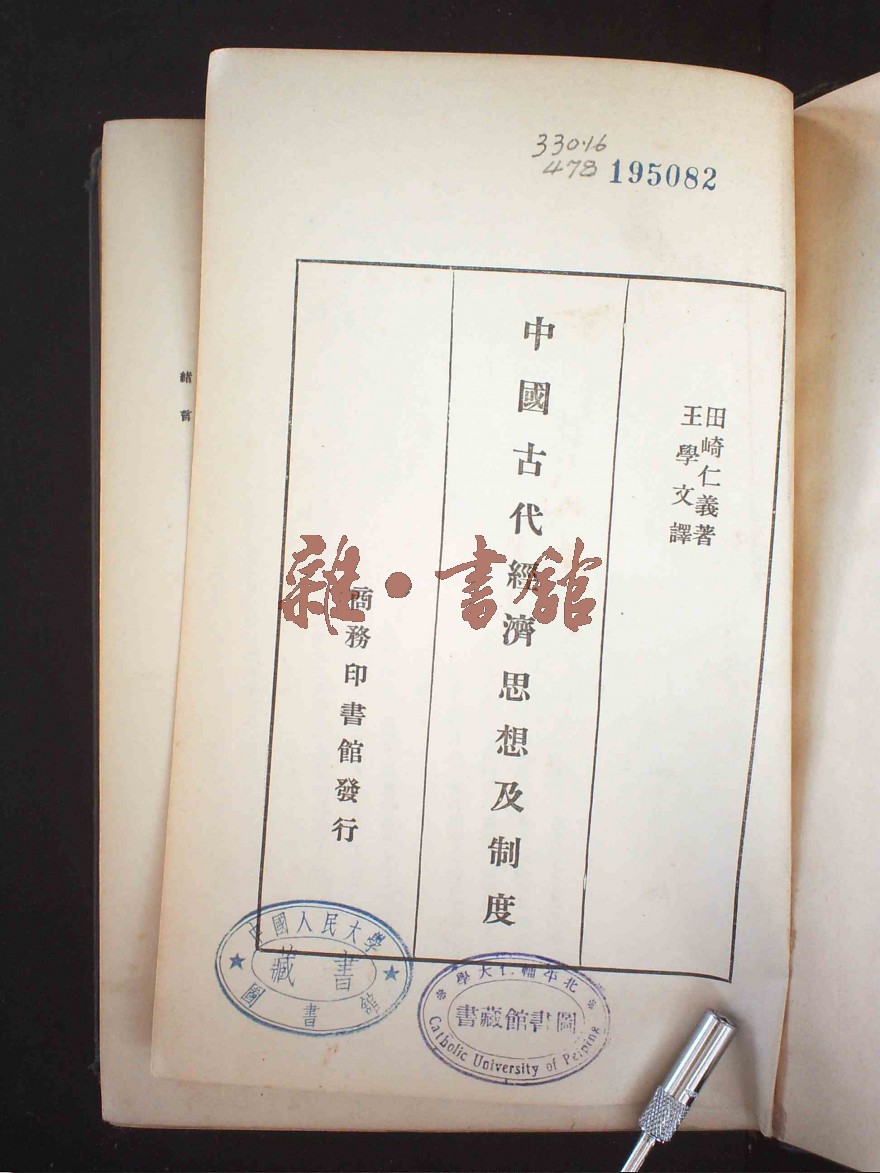 330.16
478 195082
田崎仁義著
王學文譯
中國古代經濟思想及制度
商務印書館發行
雜·書館
緒言
中國人民大學
藏書
圖書館
北平輔仁大學
圖書館藏書
Catholic University of Peiping